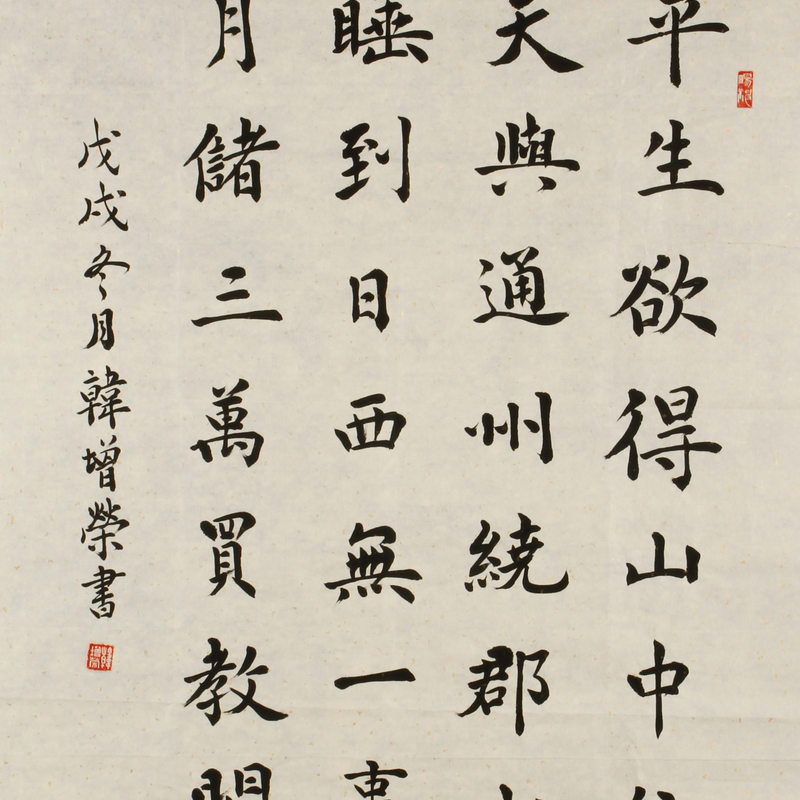 平生欲得山中
天與通州繞郡
睡到日西無一
月儲三萬買教
戊戌冬月韓增榮書